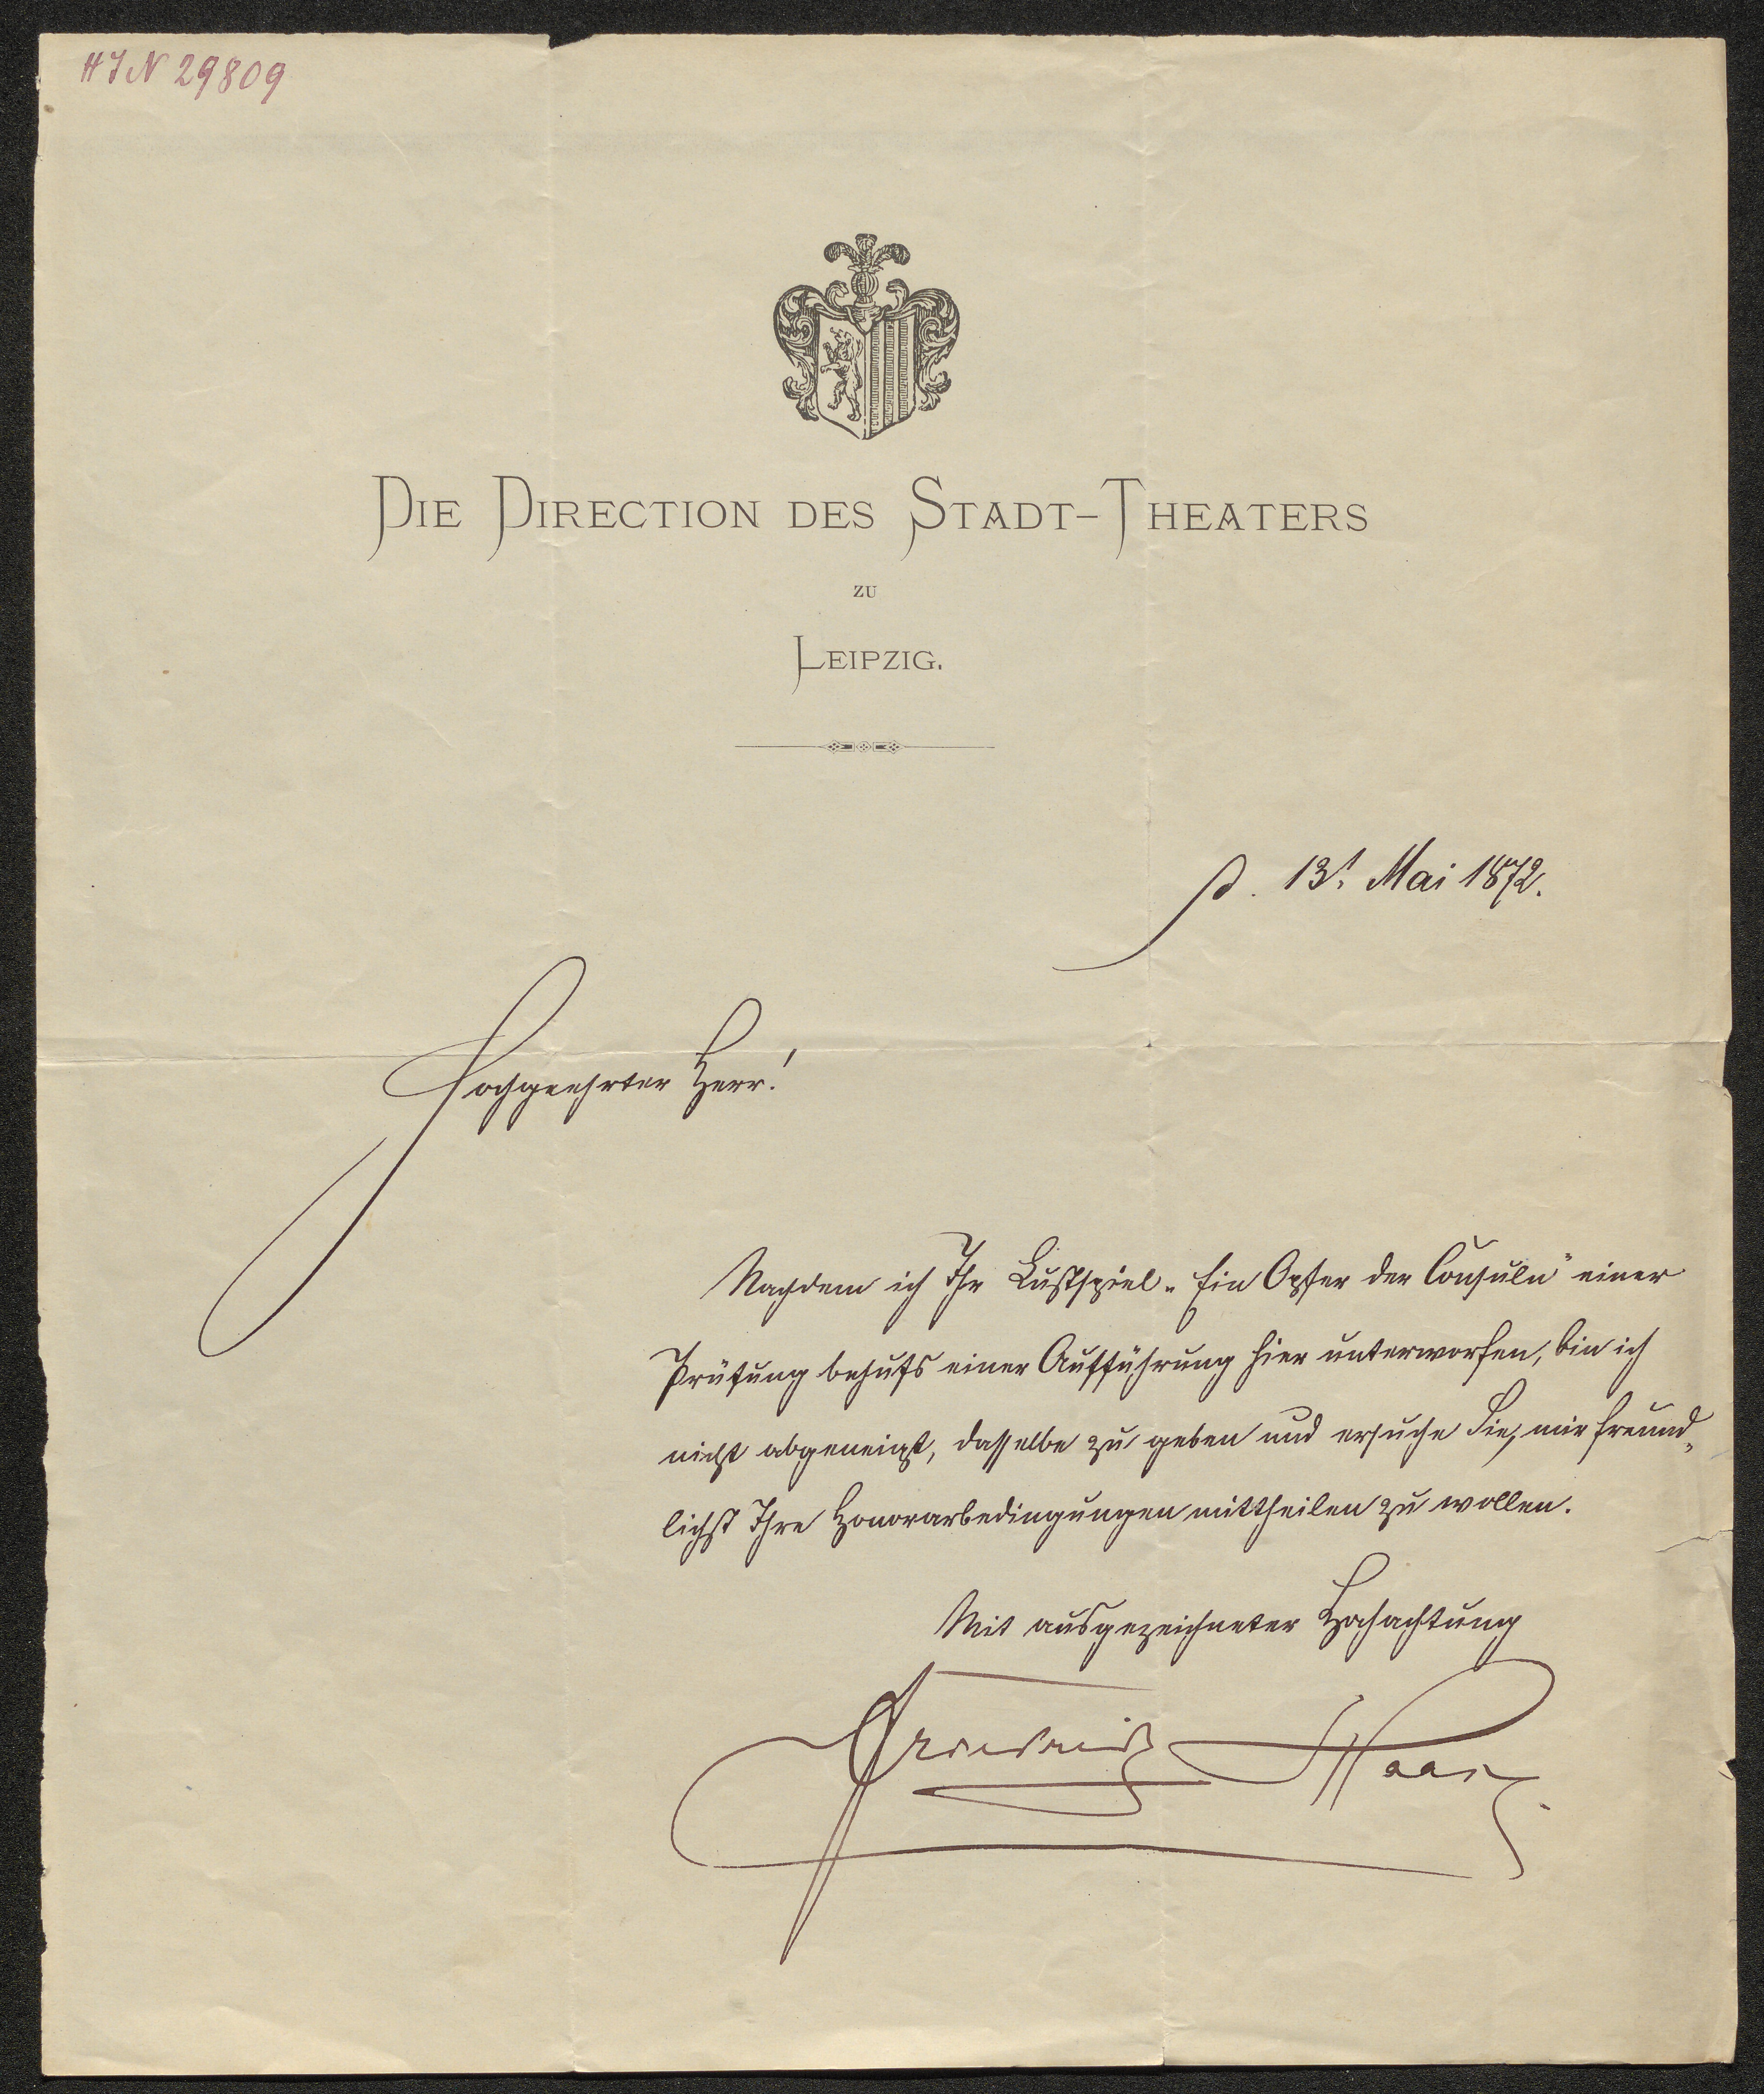 HIN 29809
DIE DIRECTION DES STADT-THEATERS
ZU
LEIPZIG.
d. 13t. Mai 1872.
Hochgeehrter Herr!
Nachdem ich Ihr Lustspiel „Ein Opfer der Consuln" einer
Prüfung behufs einer Aufführung hier unterworfen, bin ich
nicht abgeneigt, dasselbe zu geben und ersuche Sie, mir freund„
lichst Ihre Honorarbedingungen mittheilen zu wollen.
Mit ausgezeichneter Hochachtung
Friedrich Haase